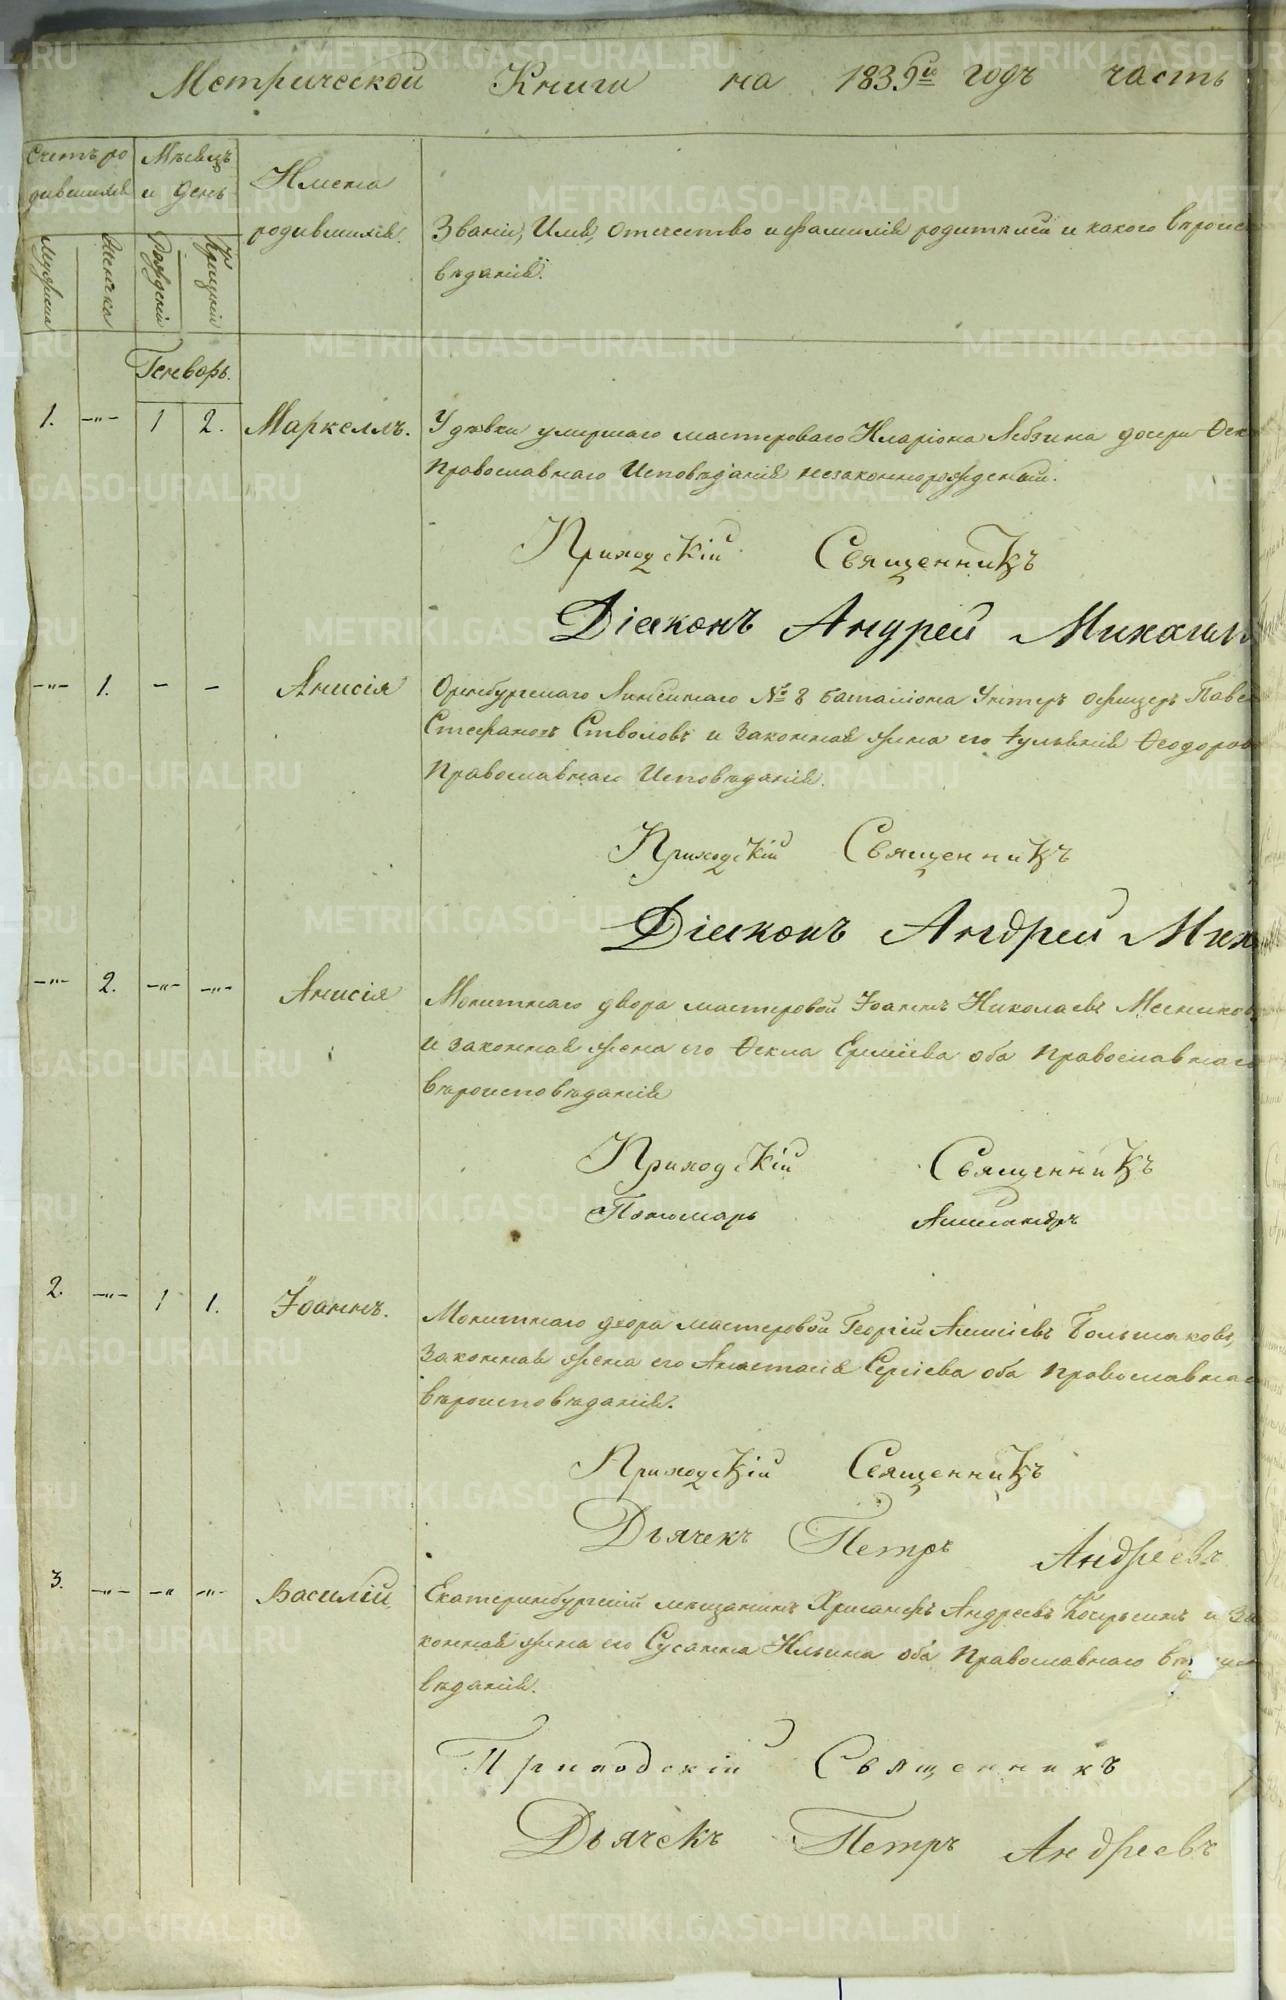 Метрической Книги на 1839й годъ часть
Счетъ ро Мѣсяцъ Имена
дившихся и день родившихся. Званіе, Имя, Отечество и фамилія родителей и какого вѣроис
вѣданія.
Мужеска Женска Рожденія Крещенія
Генварь.
1. -"- 1 2. Маркеллъ. У дѣвки умершаго мастероваго Иларіона дочери
Православнаго Исповѣданія незаконнорожденный.
Приходскій Священникъ
Діаконъ Андрей Михаил
-"- 1. - - Анисія Оренбургскаго Линейнаго № 8 баталіона Унтеръ офицеръ Паве
Стефановъ Стволовъ и Законная жена его Ѳеодоров
Православнаго Исповѣданія.
Приходскій Священникъ
Діаконъ Андрей Мих
-"- 2. -"- -"- Анисія Монетнаго двора мастеровой Іоаннъ Николаевъ
и законная жена его Ѳекла оба Православнаго
вѣроисповѣданія
Приходскій Священникъ
Пономарь Александръ
2. -"- 1 1. Іоаннъ. Монетнаго двора мастеровой Георгій Алексіевъ Большаковъ,
Законная жена его Анастасія Сергіева оба Православнаг
вѣроисповѣданія.
Приходскій Священникъ
Дьячекъ Петръ Андреевъ
3. -"- -" -"- Василій Екатеринбургскій мещанинъ Андреевъ и За
конная жена его Сусанна Ильина оба Православнаго
вѣданія.
Приходскій Священникъ
Дьячекъ Петръ Андреевъ
METRIKI.GASO-URAL.RU